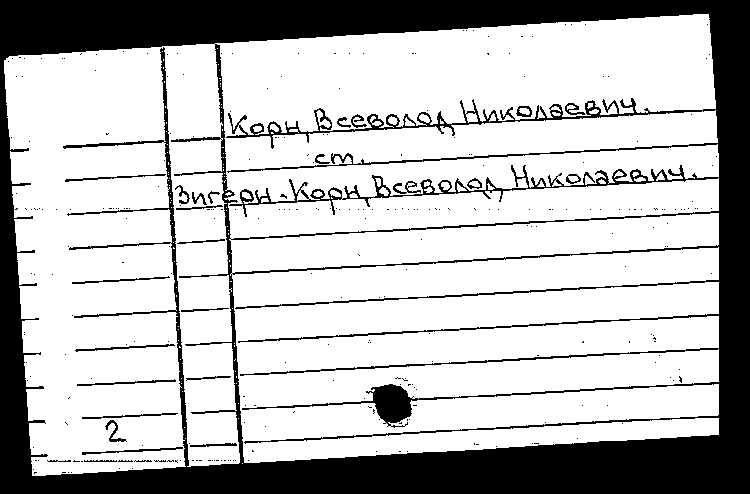 Корн, Всеволод Николаевич.
ст.
Зигерн-Корн, Всеволод Николаевич.
2